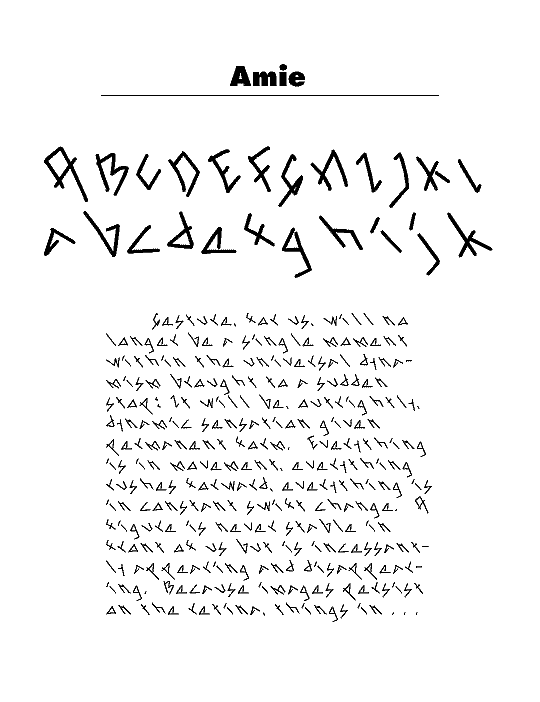 Amie
A B C D E F G H I J K L
a b c d e f g h i j k
Gesture, for us, will no
longer be a single moment
within the universal dyna-
mism brought to a sudden
stop: It will be, outrightly,
dynamic sensation given
permanent form. Everything
is in movement, everything
rushes forward, everything is
in constant swift change. A
figure is never stable in
front of us but is incessant-
ly appearing and disappear-
ing. Because images persist
on the retina, things in . . .